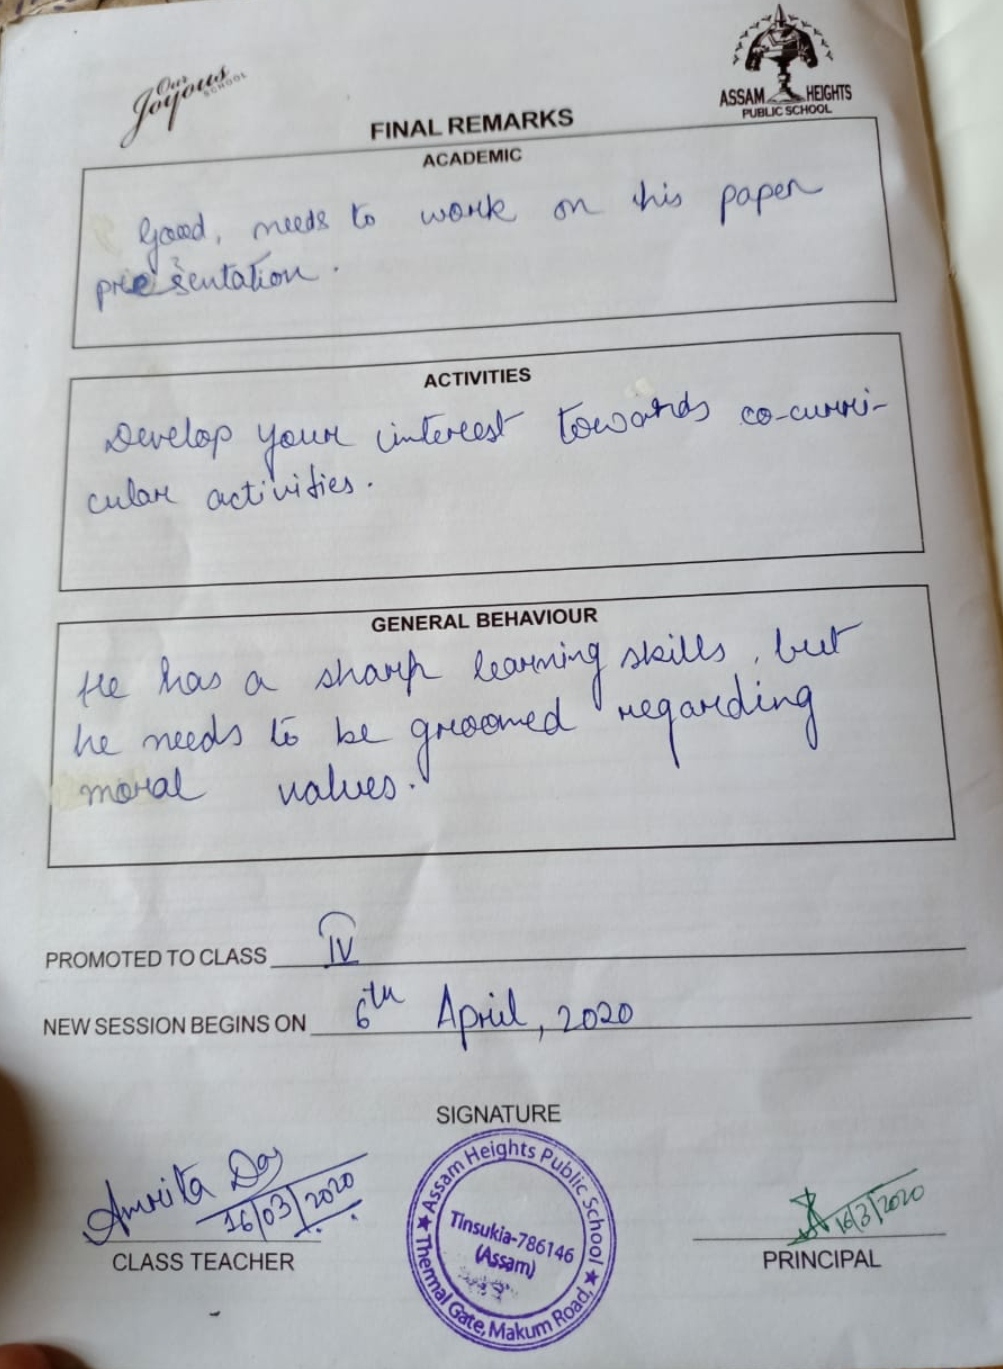 Our
Joyous
SCHOOL
ASSAM HEIGHTS
PUBLIC SCHOOL
FINAL REMARKS
ACADEMIC
Good, needs to work on his paper
presentation.
ACTIVITIES
Develop your interest towards co-curri-
cular activities.
GENERAL BEHAVIOUR
He has a sharp learning skills, but
he needs to be groomed regarding
moral values.
PROMOTED TO CLASS IV
NEW SESSION BEGINS ON 6th April, 2020
SIGNATURE
Amrita Das
16/03/2020
CLASS TEACHER
★ Assam Heights Public School ★
Tinsukia-786146
(Assam)
Thermal Gate, Makum Road,
16/3/2020
PRINCIPAL